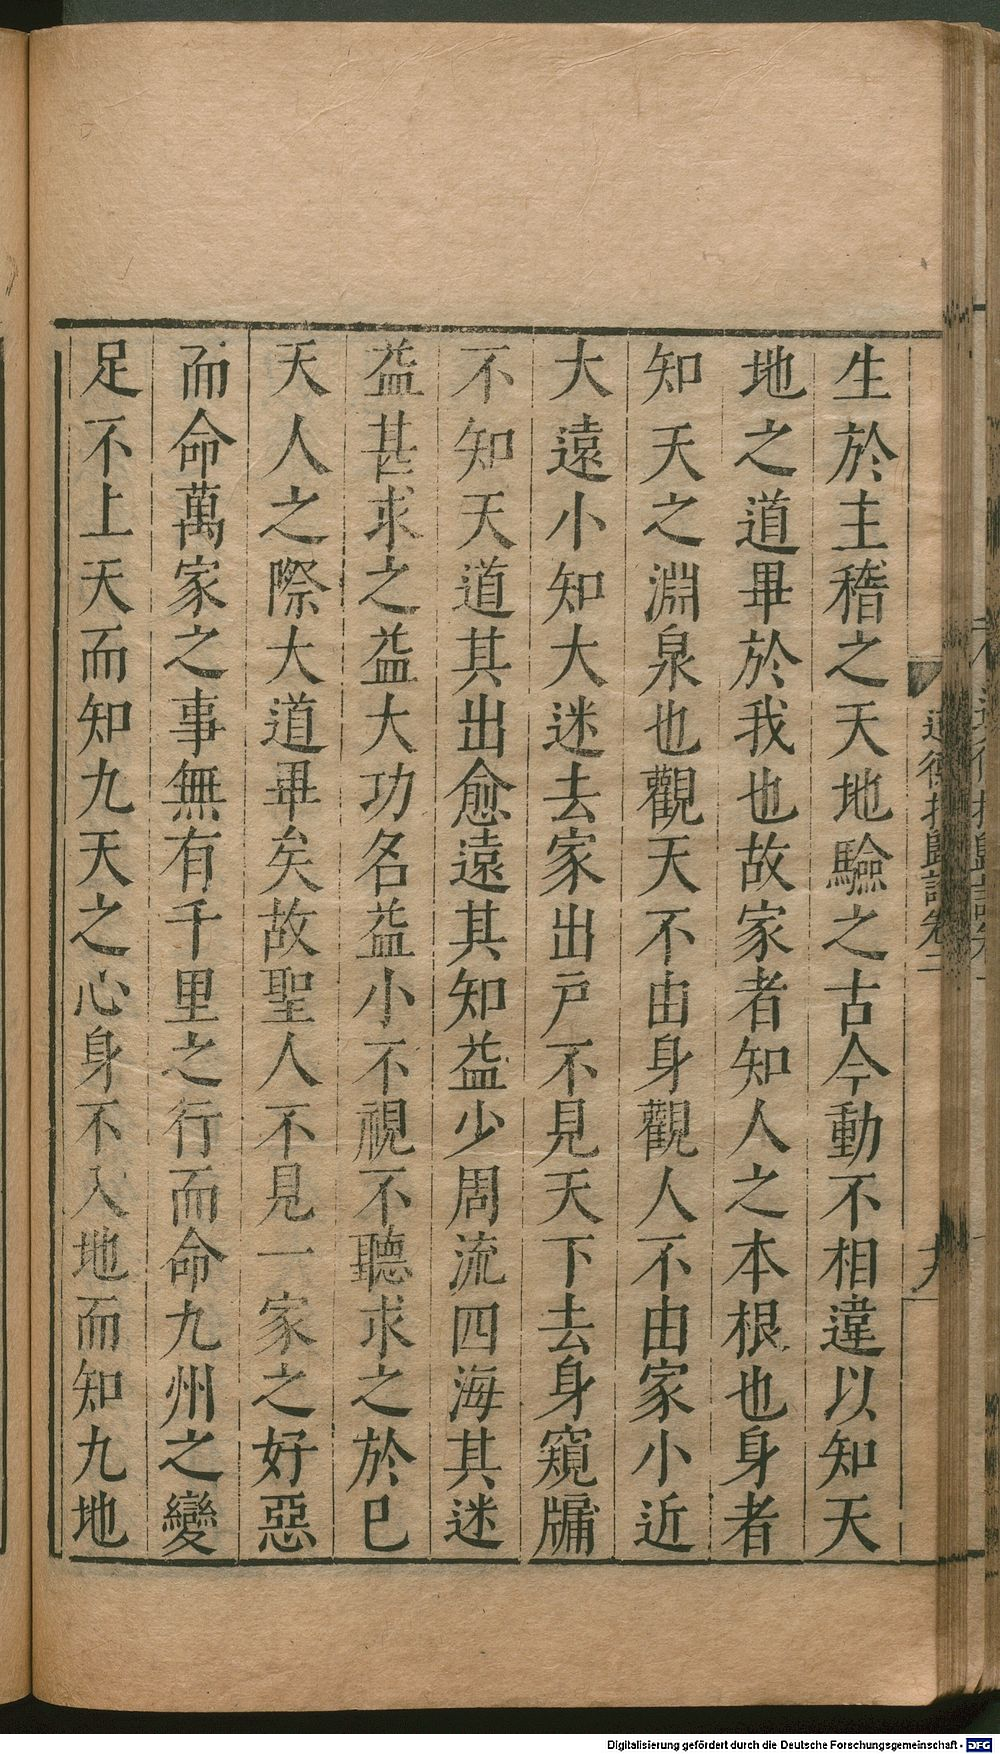 生於主稽之天地驗之古今動不相違以知天
地之道畢於我也故家者知人之本根也身者
知天之淵泉也觀天不由身觀人不由家小近
大遠小知大迷去家出戶不見天下去身窺牖
不知天道其出愈遠其知益少周流四海其迷
益甚求之益大功名益小不視不聽求之於已
天人之際大道畢矣故聖人不見一家之好惡
而命萬家之事無有千里之行而命九州之變
足不上天而知九天之心身不入地而知九地
道德指歸論卷二
Digitalisierung gefördert durch die Deutsche Forschungsgemeinschaft - DFG